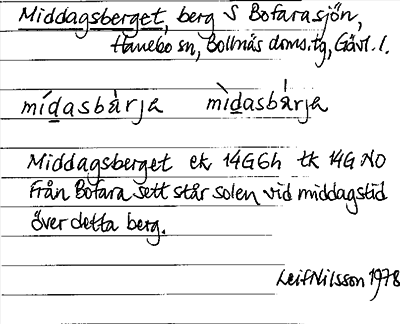 Middagsberget, berg S Bofarasjön,
Hanebo sn, Bollnäs doms.tg, Gävl. l.
mídasbàrja mìdasbárja
Middagsberget ek 14G6h tk 14G NO
Från Bofara sett står solen vid middagstid
över detta berg.
Leif Nilsson 1978